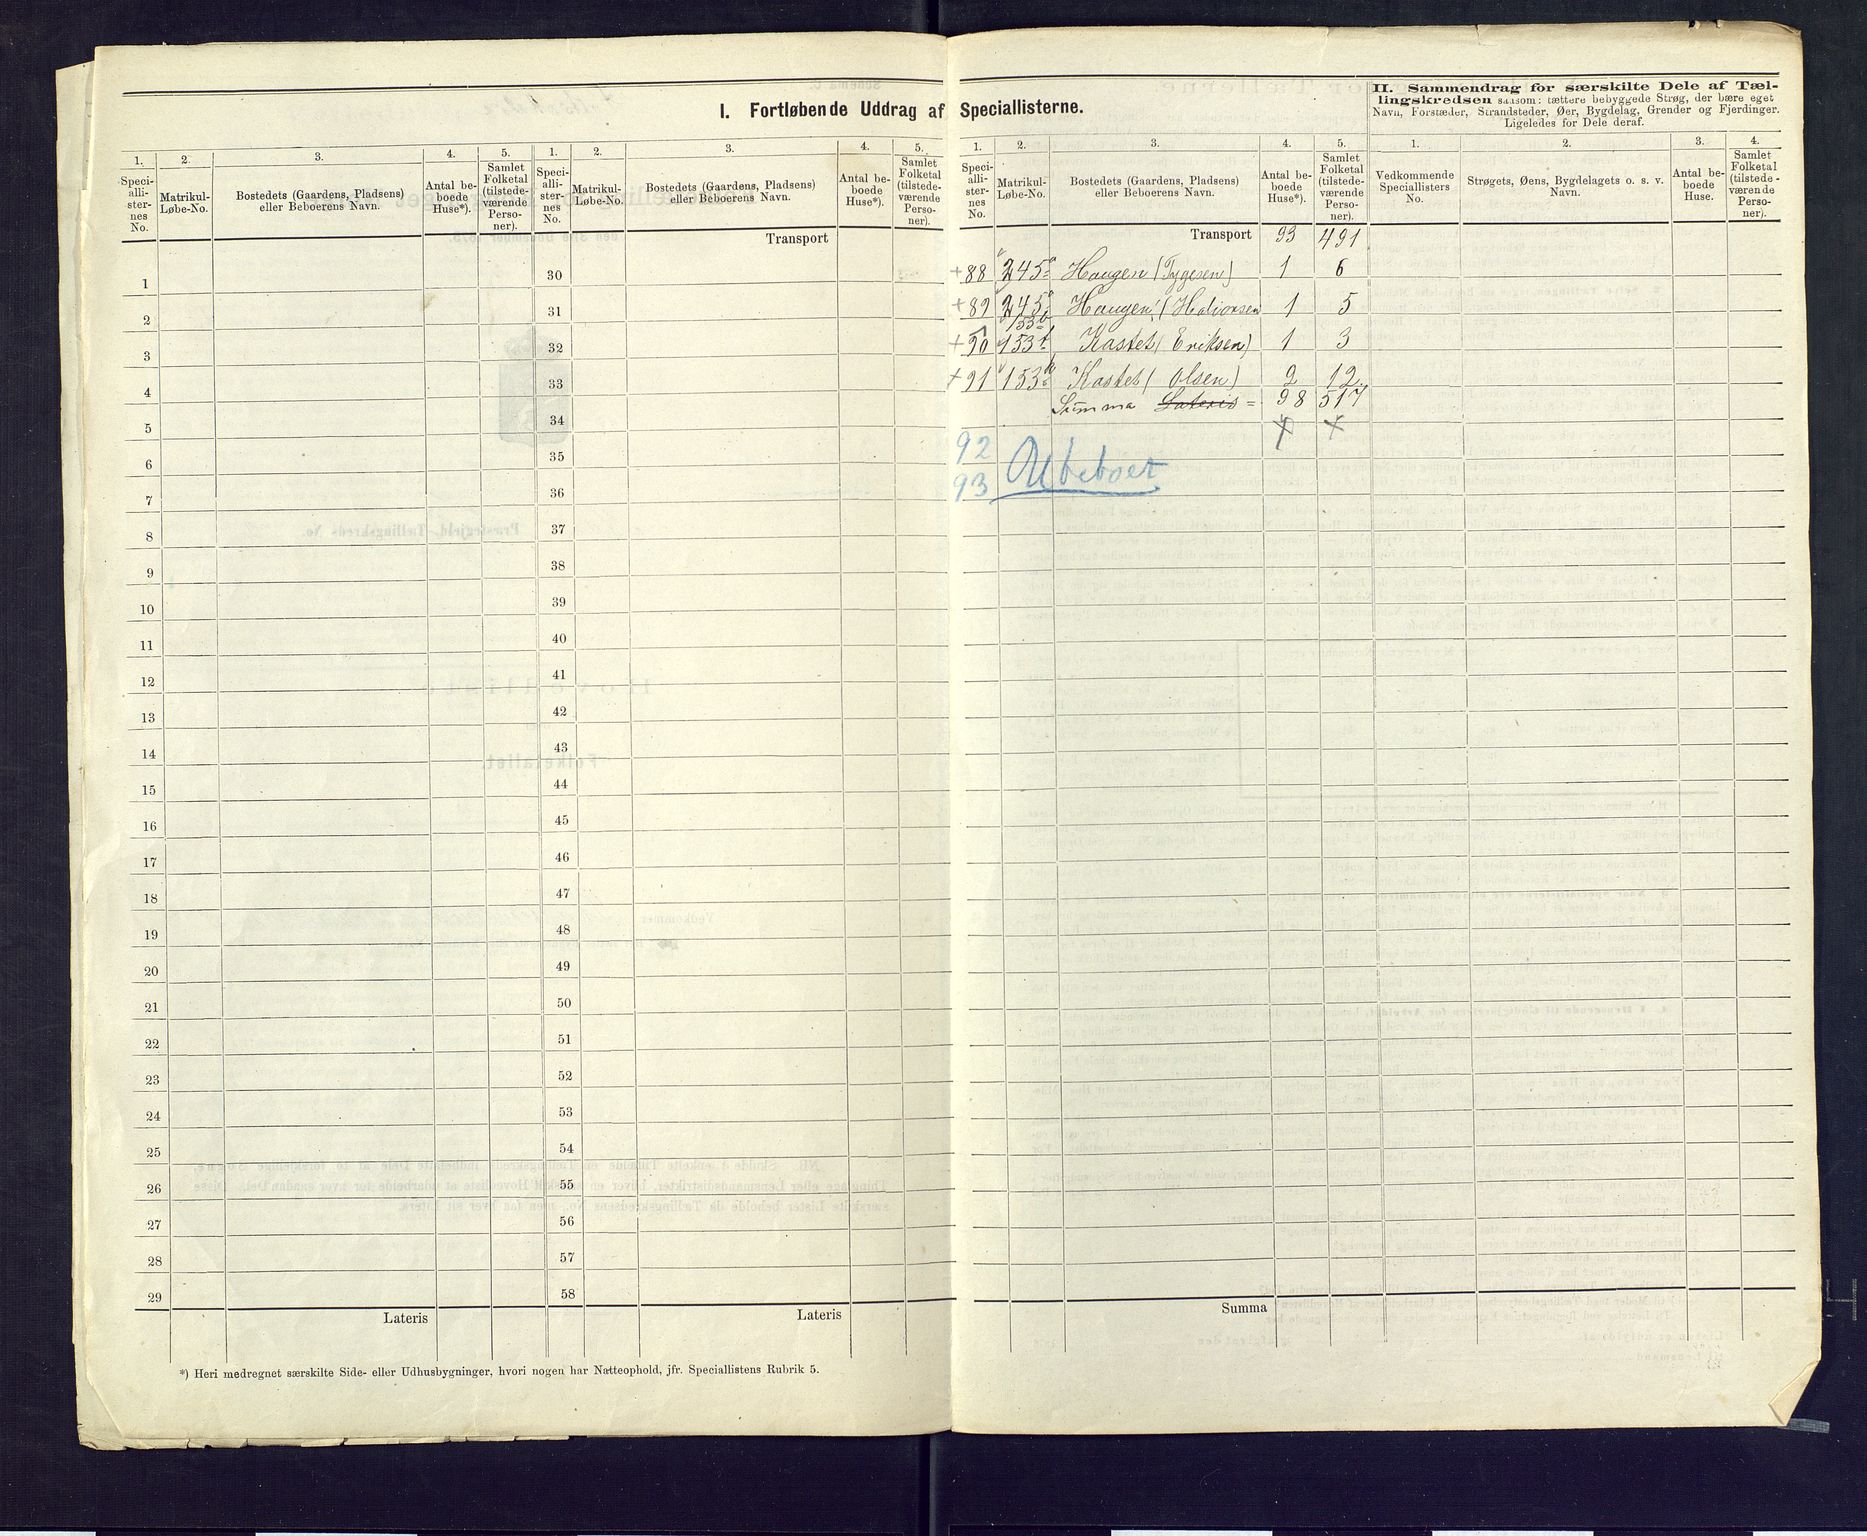 I. Fortløbende Uddrag af Speciallisterne.
II. Sammendrag for særskilte Dele af Tæl-
lingskredsen saasom: tættere bebyggede Strøg, der bære eget
Navn, Forstæder, Strandsteder, Øer, Bygdelag, Grender og Fjerdinger.
Ligeledes for Dele deraf.
1. 2. 3. 4. 5. 1. 2. 3. 4. 5.
Speci-
alli-
ster-
nes
No.
Matrikul-
Løbe-No.
Bostedets (Gaardens, Pladsens)
eller Beboerens Navn.
Antal be-
boede
Huse*).
Samlet
Folketal
(tilstede-
værende
Perso-
ner).
Speci-
alli-
ster-
nes
No.
Matrikul-
Løbe-No.
Bostedets (Gaardens, Pladsens)
eller Beboerens Navn.
Antal be-
boede
Huse*).
Samlet
Folketal
(tilstede-
værende
Perso-
ner).
Transport
1 30
2 31
3 32
4 33
5 34
6 35
7 36
8 37
9 38
10 39
11 40
12 41
13 42
14 43
15 44
16 45
17 46
18 47
19 48
20 49
21 50
22 51
23 52
24 53
25 54
26 55
27 56
28 57
29 58
Lateris Lateris
*) Heri medregnet særskilte Side- eller Udhusbygninger, hvori nogen har Natteophold, jfr. Speciallistens Rubrik 5.
1. 2. 3. 4. 5. 1. 2. 3. 4.
Speci-
alli-
ster-
nes
No.
Matrikul-
Løbe-No.
Bostedets (Gaardens, Pladsens)
eller Beboerens Navn.
Antal be-
boede
Huse*).
Samlet
Folketal
(tilstede-
værende
Perso-
ner).
Vedkommende
Speciallisters
No.
Strøgets, Øens, Bygdelagets o. s. v.
Navn.
Antal be-
boede
Huse.
Samlet
Folketal
(tilstede-
værende
Perso-
ner).
Transport 93 491
+88 245 Haugen (Tygesen) 1 6
+89 245 Haugen (Halvorsen 1 5
153
+90 153 Kastet (Eriksen) 1 3
+91 153 Kastet (Olsen) 2 12
Summa Lateris = 98 517
92
93 Ubeboet
Summa